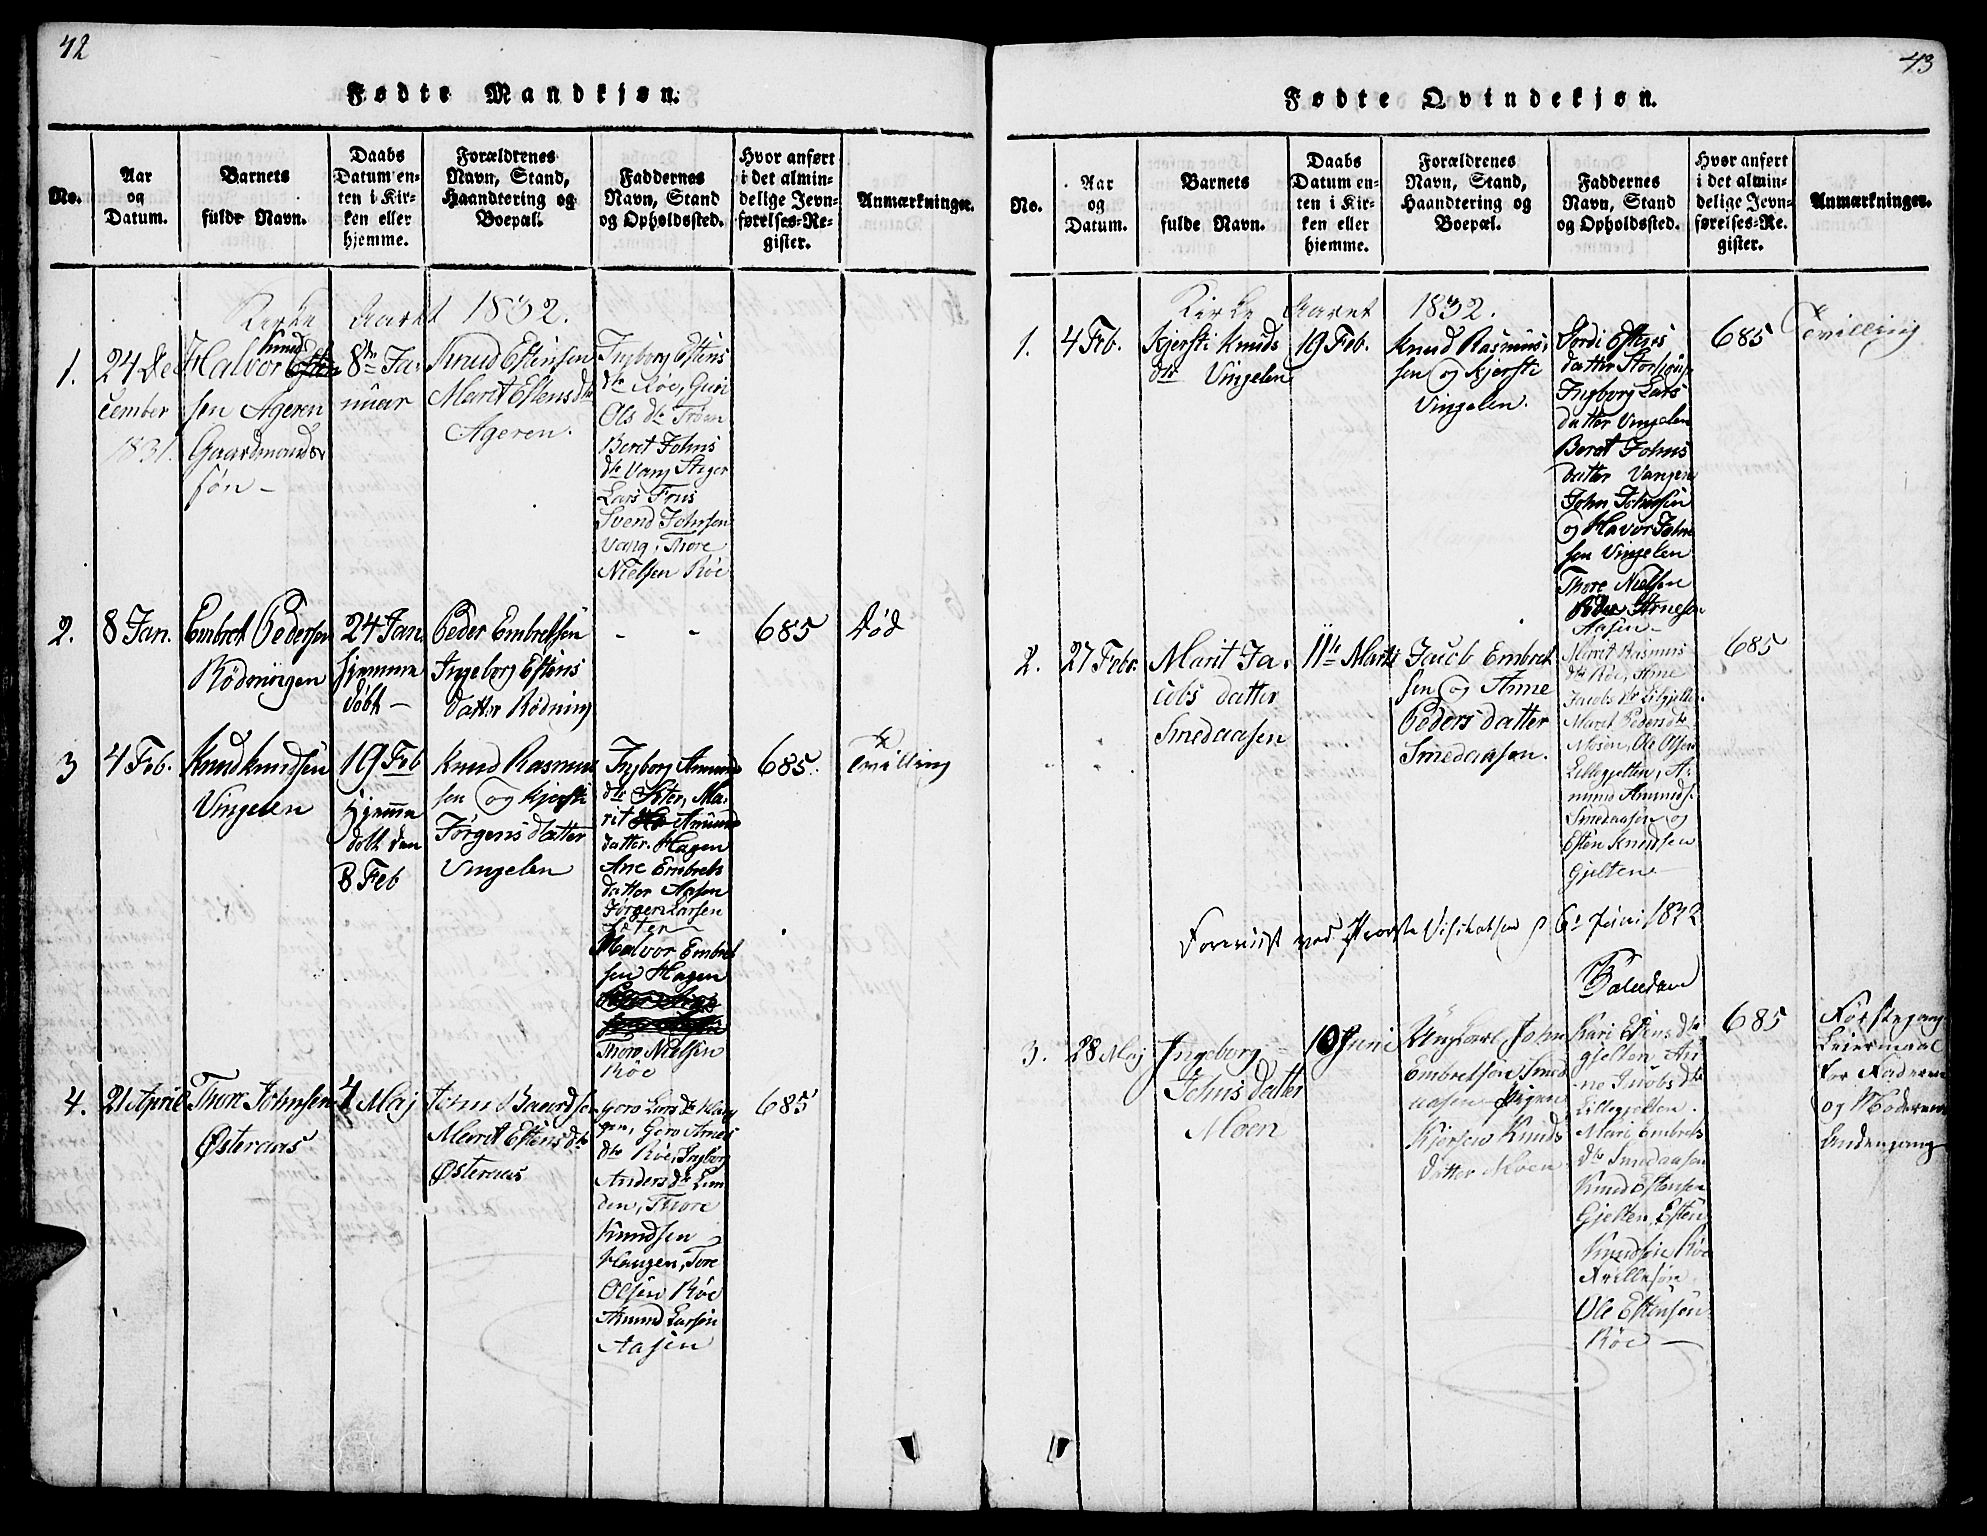 42
Fødte Mandkjøn.
No.
Aar
og
Datum.
Barnets
fulde Navn.
Daabs
Datum en-
ten i Kir-
ken eller
hjemme.
Forældrenes
Navn, Stand,
Haandtering og
Boepæl.
Faddernes
Navn, Stand
og Opholdssted.
Hvor anført
i det almin-
delige Jevn-
førelses-Re-
gister.
Anmærkninger.
Kirke Aaret 1832.
1.
24 De
cember
1831.
Knud
Halvor Esten
sen Ageren
Gaardmands
søn -
8de Ja-
nuar
Knud Estensen
Marit Estens dtr
Ageren.
Ingborg Estens
dtr Røe, Guri
Ols dtr Trøen
Beret Johns
dtr Vang
Lars
Svend Johnsen
Vang, Thore
Nielsen Røe
2.
8 Jan.
Embret Pedersen
Rödningen
24 Jan.
hjemme
döbt -
Peder Embretsen
Ingeborg Estens
datter Rödning
- -
685
Död
3
4 Feb.
Knud Knudsen
Vingelen
19 Feb
hjemme
döbt den
8 Feb
Knud Rasmus
sen og Kjersti
Jørgens datter
Vingelen
Ingborg Amund
dtr Seter, Ma-
rit Amund
datter Hagen
Ane Embrets
datter Aasen
Jørgen Larsen
Seter
Halvor Embret
sen Hagen
Thore Nielsen
Röe
685
Tvilling
4.
21 April
Thore Johnsen
Østeraas
4 Maj
John Baardsen
Marit Estens dtr
Østeraas
Goro Lars dtr Haug
gen, Goro Arnes
dtr Røe, Ingborg
Anders dtr Lun
den, Thore
Knudsen
Haugen, Tore
Olsen Røe
Amund Larsen
Aasen
685
43
Fødte Qvindekjøn.
No.
Aar
og
Datum.
Barnets
fulde Navn.
Daabs
Datum en-
ten i Kir-
ken eller
hjemme.
Forældrenes
Navn, Stand,
Haandtering og
Boepæl.
Faddernes
Navn, Stand
og Opholdssted.
Hvor anført
i det almin-
delige Jevn-
førelses-Re-
gister.
Anmærkninger.
Kirke Aaret 1832.
1.
4 Feb.
Kjersti Knuds
dtr Vingelen
19 Feb.
Knud Rasmus-
sen og Kjersti
Vingelen.
Gordi Estens
datter
Ingborg Lars
datter Vingelen
Beret Johns
datter Vangen
John Johnsen
og Havor John
sen Vingelen
Thore Nielsen
Arnesen
Aasen -
685
Tvilling
2.
27 Febr.
Marit Ja-
cobs datter
Smedaasen
11te Marts
Jacob Embret
sen og Anne
Peders datter
Smedaasen.
Marit Rasmus
dtr Röe, Anne
Jacobs dtr Lilgjelte
Marit Peders dtr
Mosen, Ole Olsen
Lillegjelten, A-
mund Amunds.
Smedaasen og
Esten Knudsen
Gjelten
685
Foreviist ved Provste Visitatsen d 6te Juni 1832
3.
28 Maj
Ingeborg
Johns datter
Moen
10 Juni
Ungkarl John
Embretsen Smed
aasen Pigen
Kjersti Knuds
datter Moen
Kari Estens dtr
gjelten, An-
ne Jacobs dtr
Lillegjelten.
Mari Embrets
dtr Smedaasen
Knud Estensen
Gjelten, Esten
Knudsen Röe
Ole Estensen
Röe -
685
Förstegang
Leiermaal
for Faderen
og Moderens
Andengang